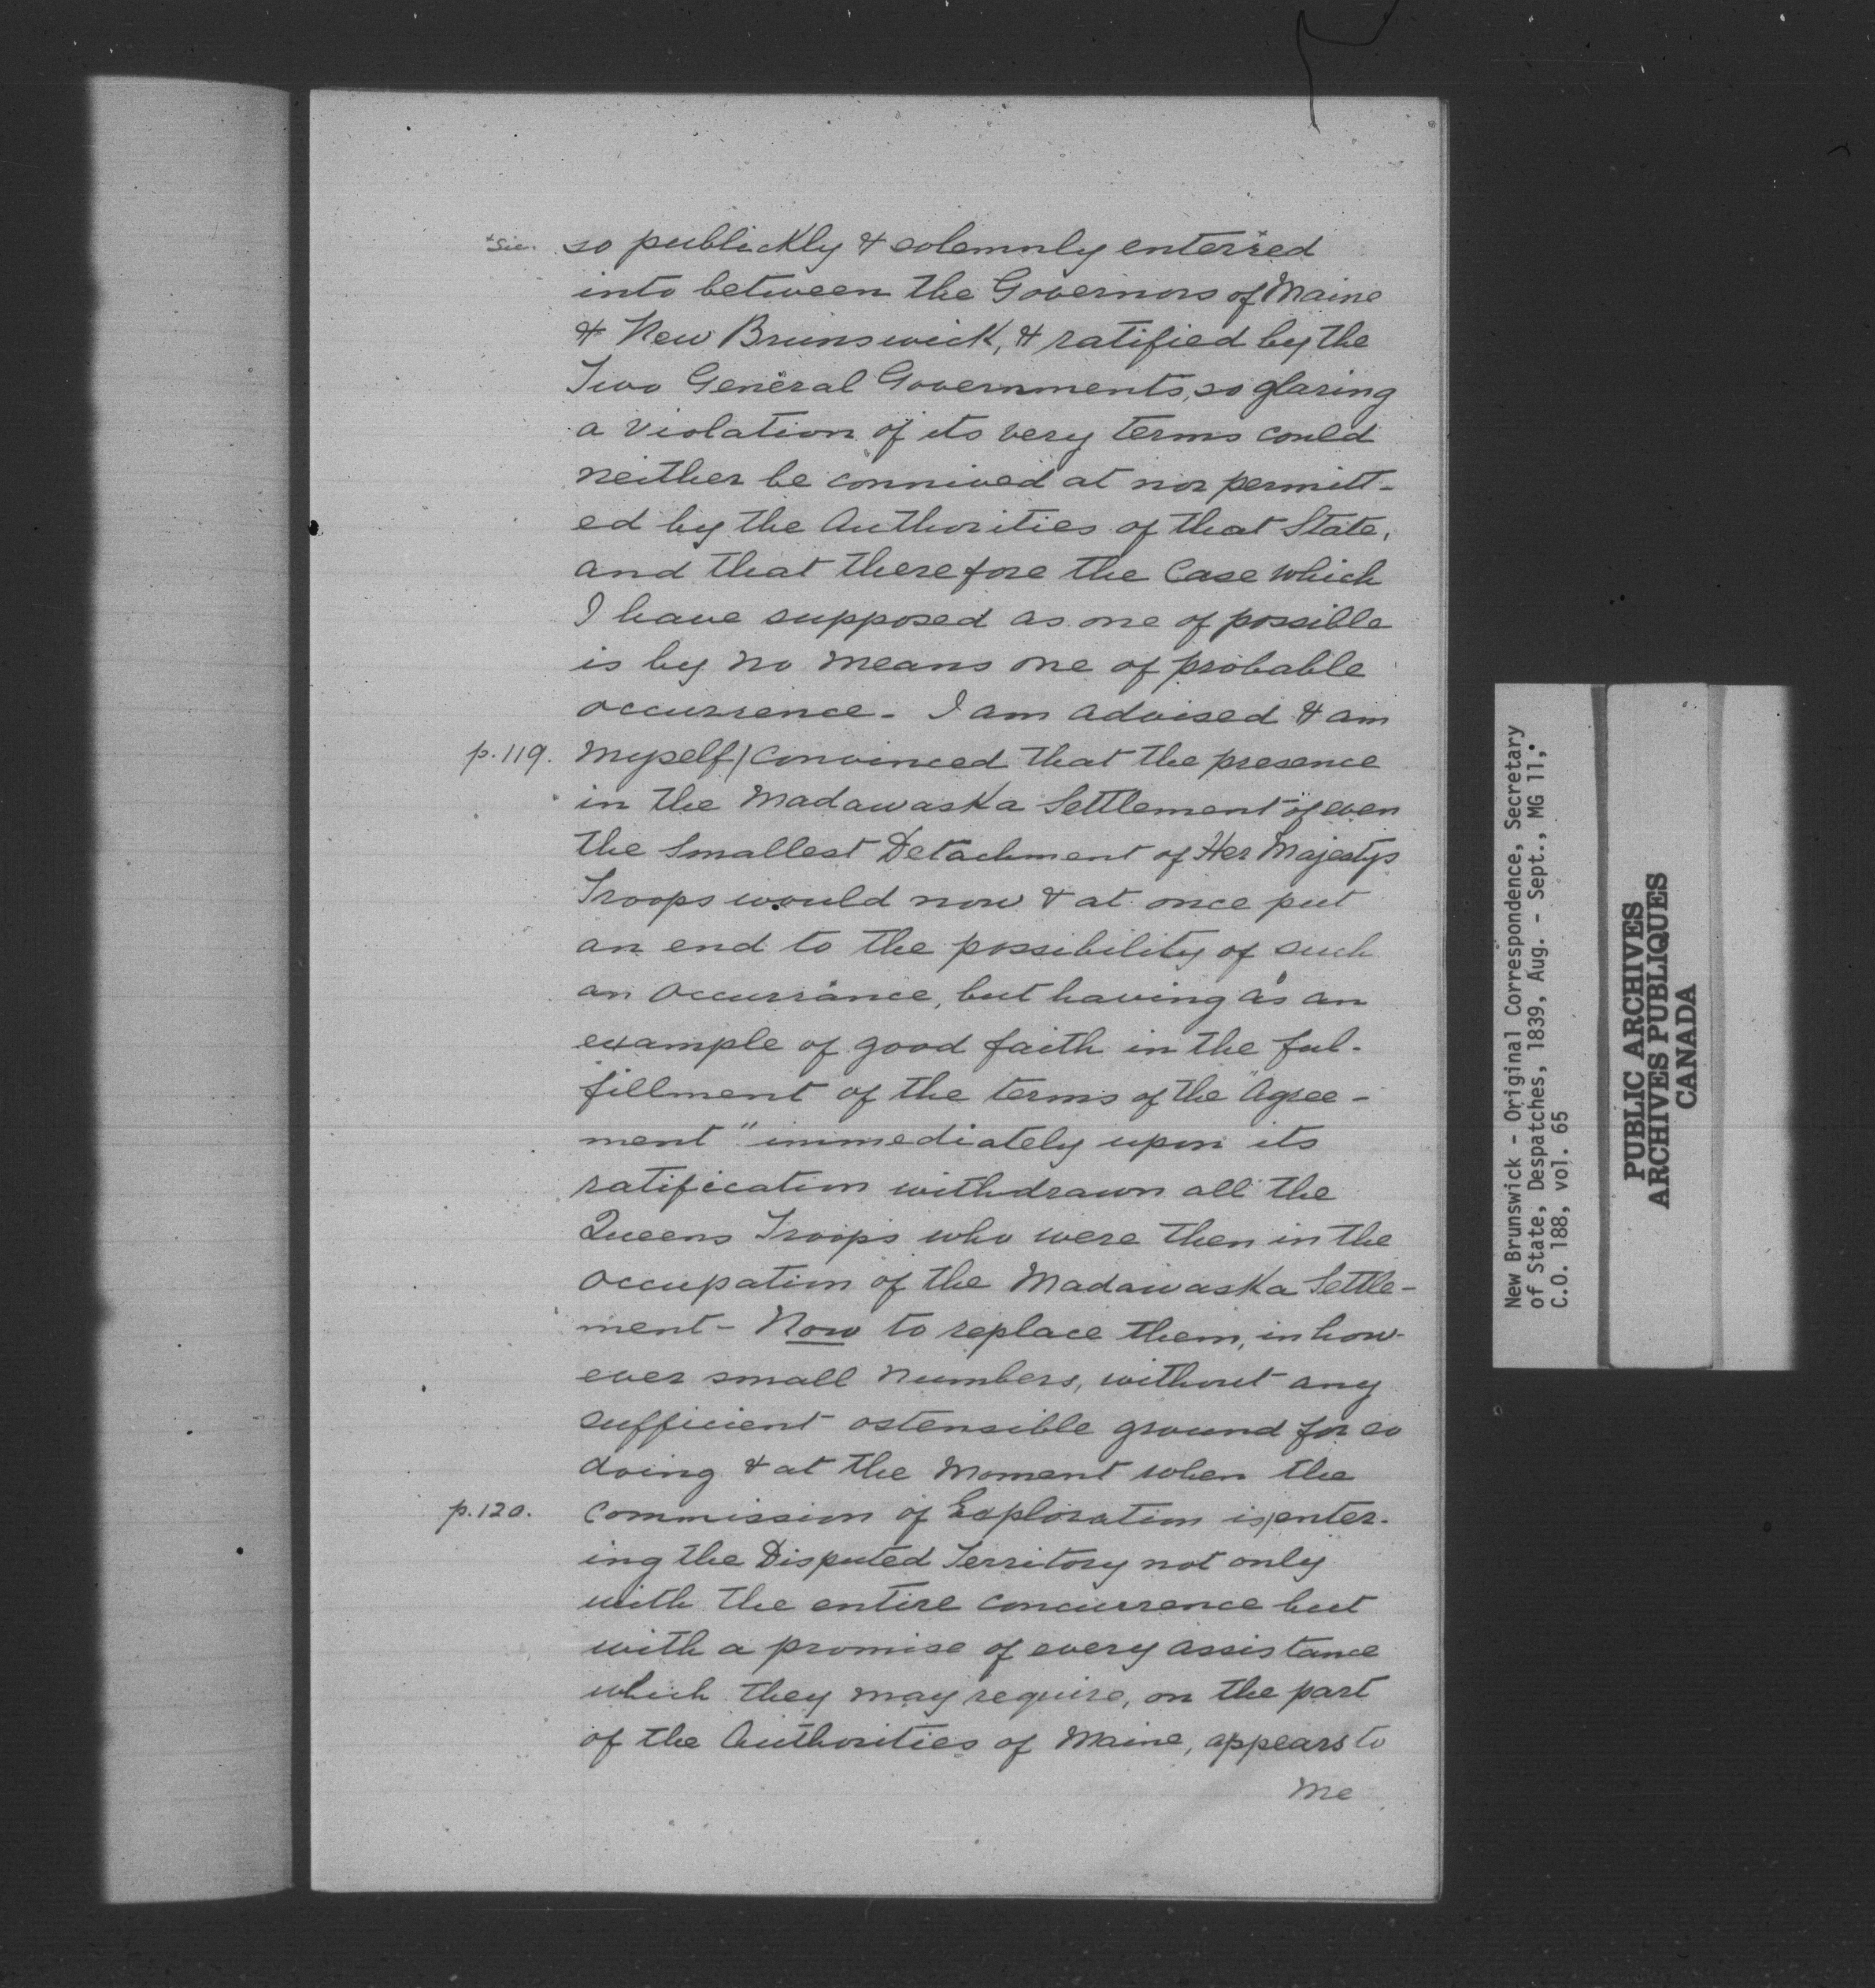 *sic. so publickly & solemnly enterred
into between the Governors of Maine
& New Brunswick, & ratified by the
Two General Governments, so glaring
a violation of its very terms could
neither be connived at nor permitt-
ed by the Authorities of that State,
and that therefore the Case which
I have supposed as one of possible
is by no means one of probable
occurrence - I am advised & am
p. 119. myself/convinced that the presence
in the Madawaska Settlement of even
the Smallest Detachment of Her Majestys
Troops would now & at once put
an end to the possibility of such
an occurrance, but having as an
example of good faith in the ful-
fillment of the terms of the "Agree-
ment" immediately upon its
ratification withdrawn all the
Queens Troops who were then in the
occupation of the Madawaska Settle-
ment - Now to replace them, in how-
ever small numbers, without any
sufficient ostensible ground for so
doing & at the Moment when the
p. 120. Commission of Exploration is/enter-
ing the Disputed Territory not only
with the entire concurrence but
with a promise of every assistance
which they may require, on the part
of the Authorities of Maine, appears to
me
New Brunswick - Original Correspondence, Secretary
of State, Despatches, 1839, Aug. - Sept., MG 11,
C.O. 188, vol. 65
PUBLIC ARCHIVES
ARCHIVES PUBLIQUES
CANADA